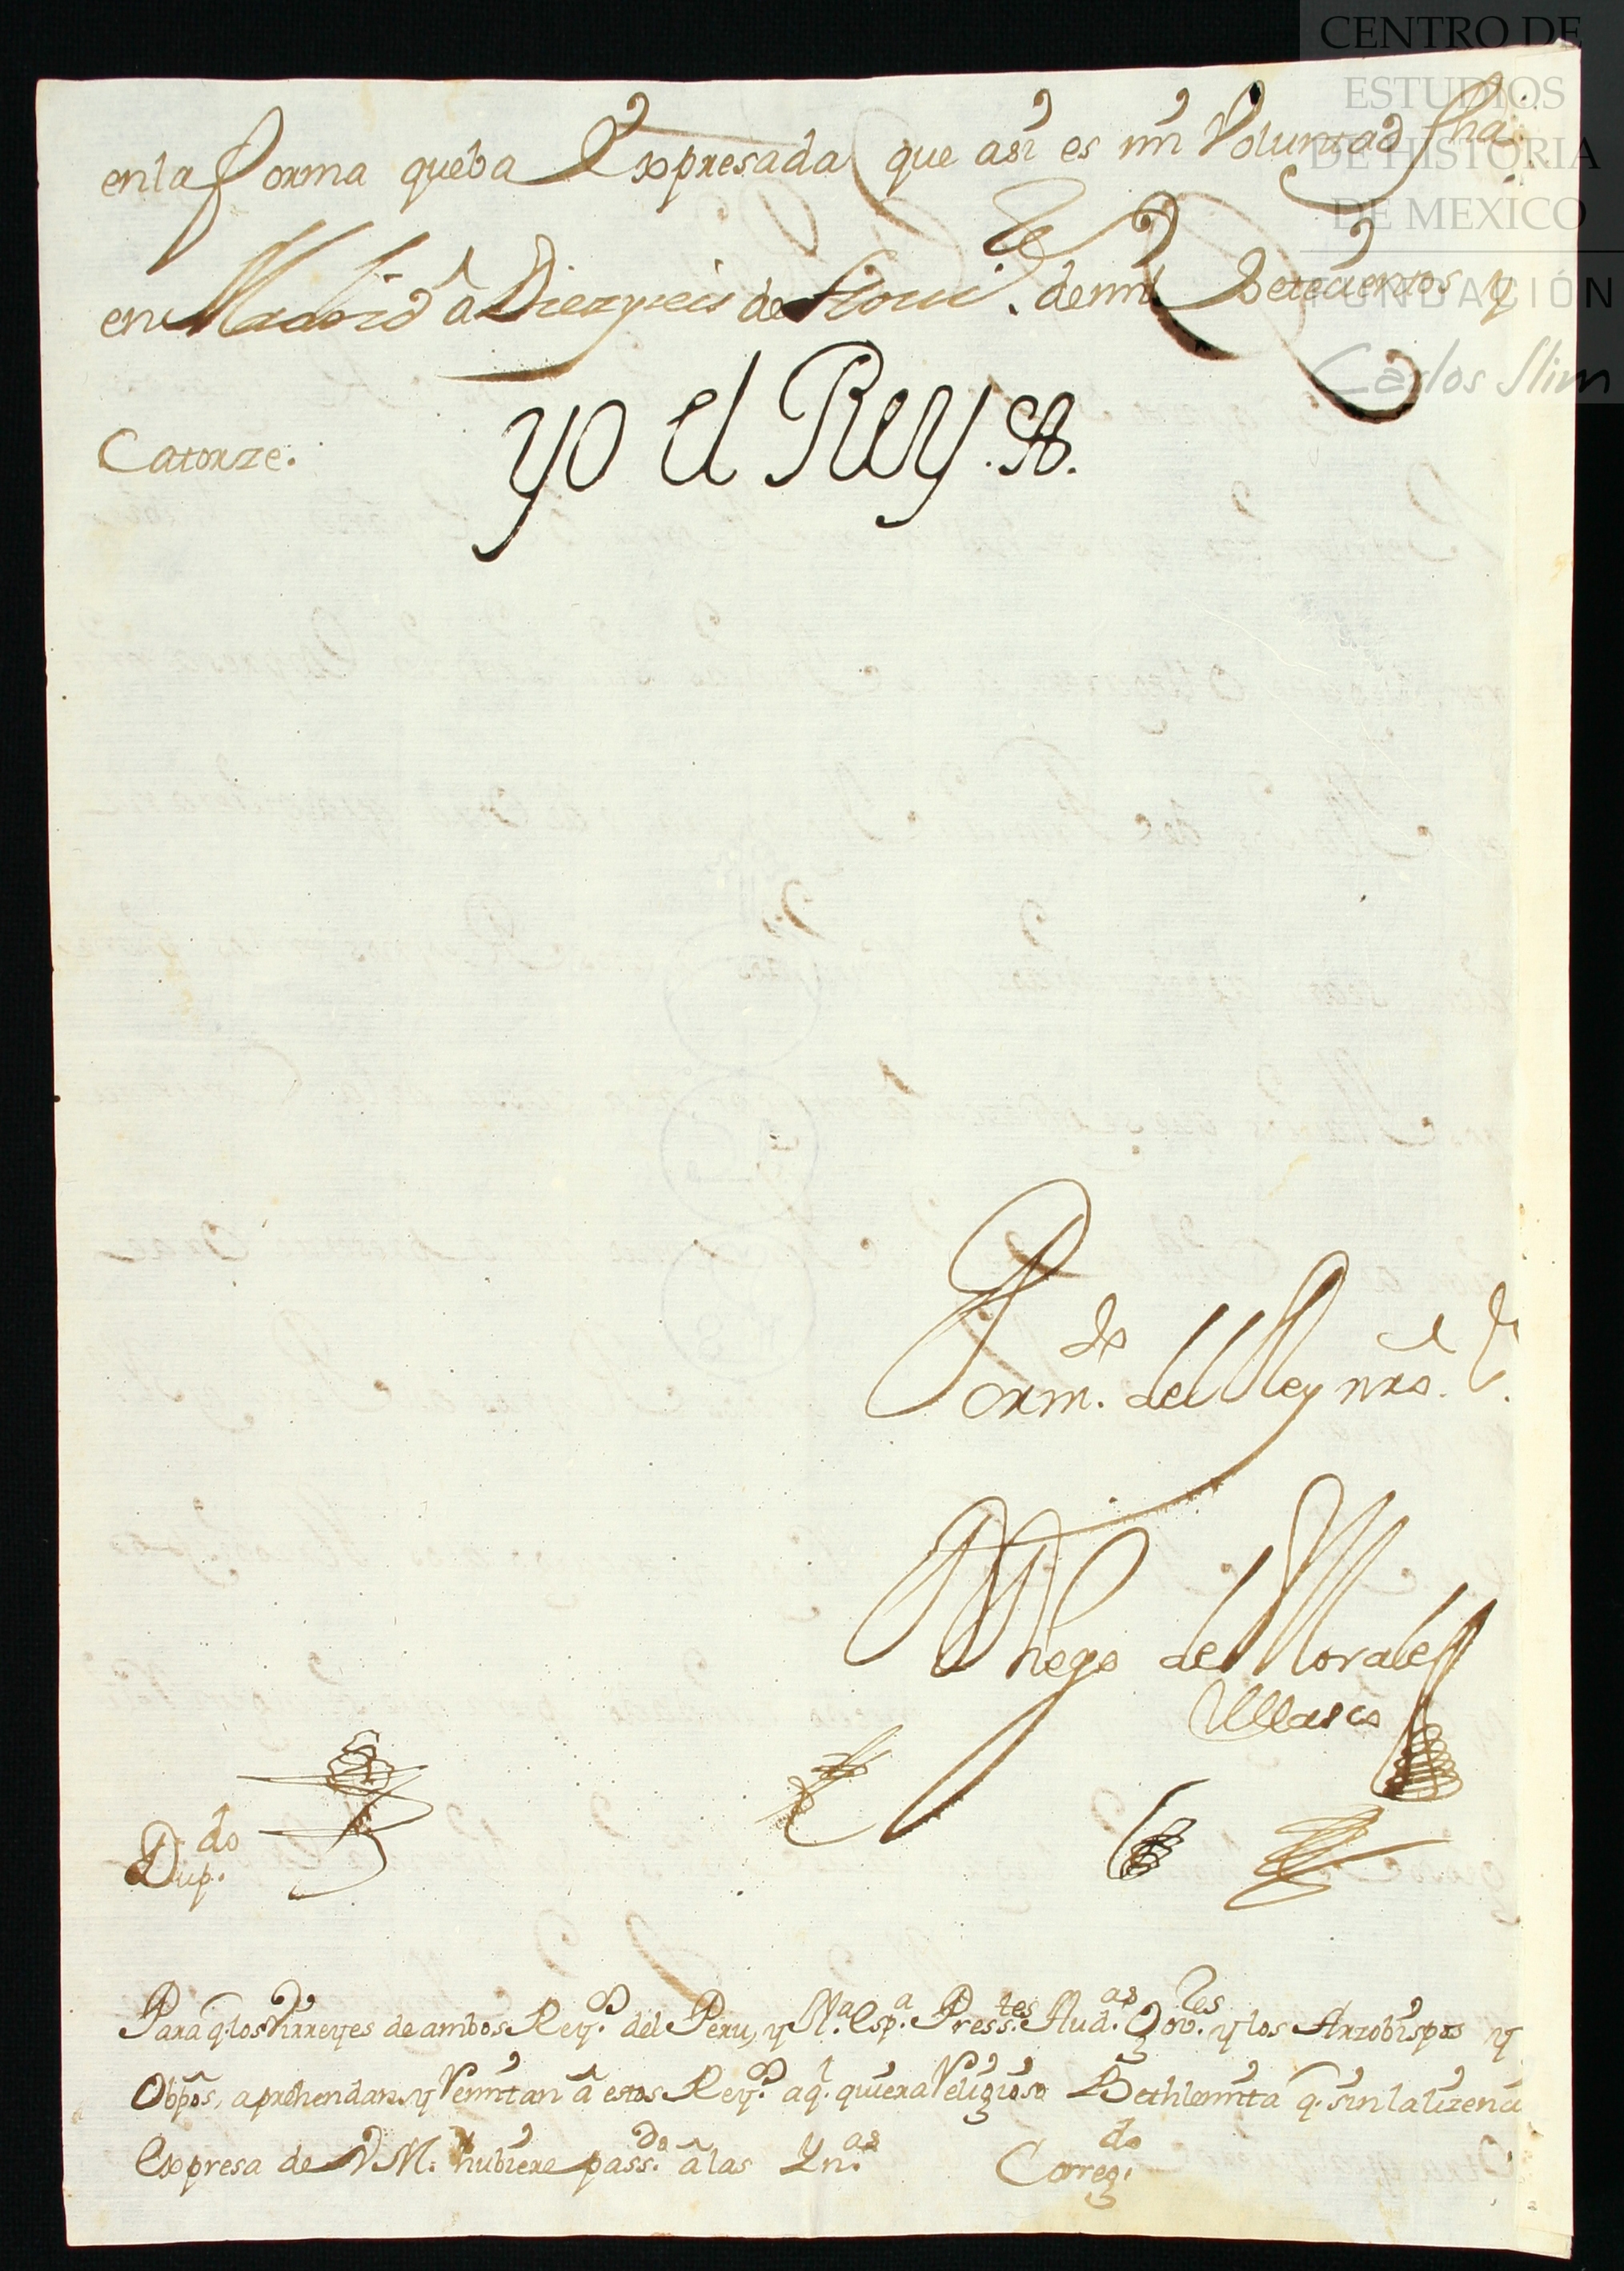 CENTRO DE
ESTUDIOS
DE HISTORIA
DE MEXICO
FUNDACIÓN
Carlos Slim
en la forma que ba Expresada que asi es mi Voluntad fha.
en Madrid à Diez y seis de de mil Setecientos y
Catorze.
yo el Rey.
Por m.do del Rey nro. S.r
Diego de Morales
Velasco
Dup.do
Para q. los Virreyes de ambos Rey.s del Peru, y N.a Esp.a Press.tes Aud.as Gov.res y los Arzobispos y
Obpos, aprehendan, y Remitan à estos Rey.s a q.l quiera Religioso Bethlemita q. sin la lizencia
Expresa de V M. hubiere pass.do à las Yn.as Correg.do